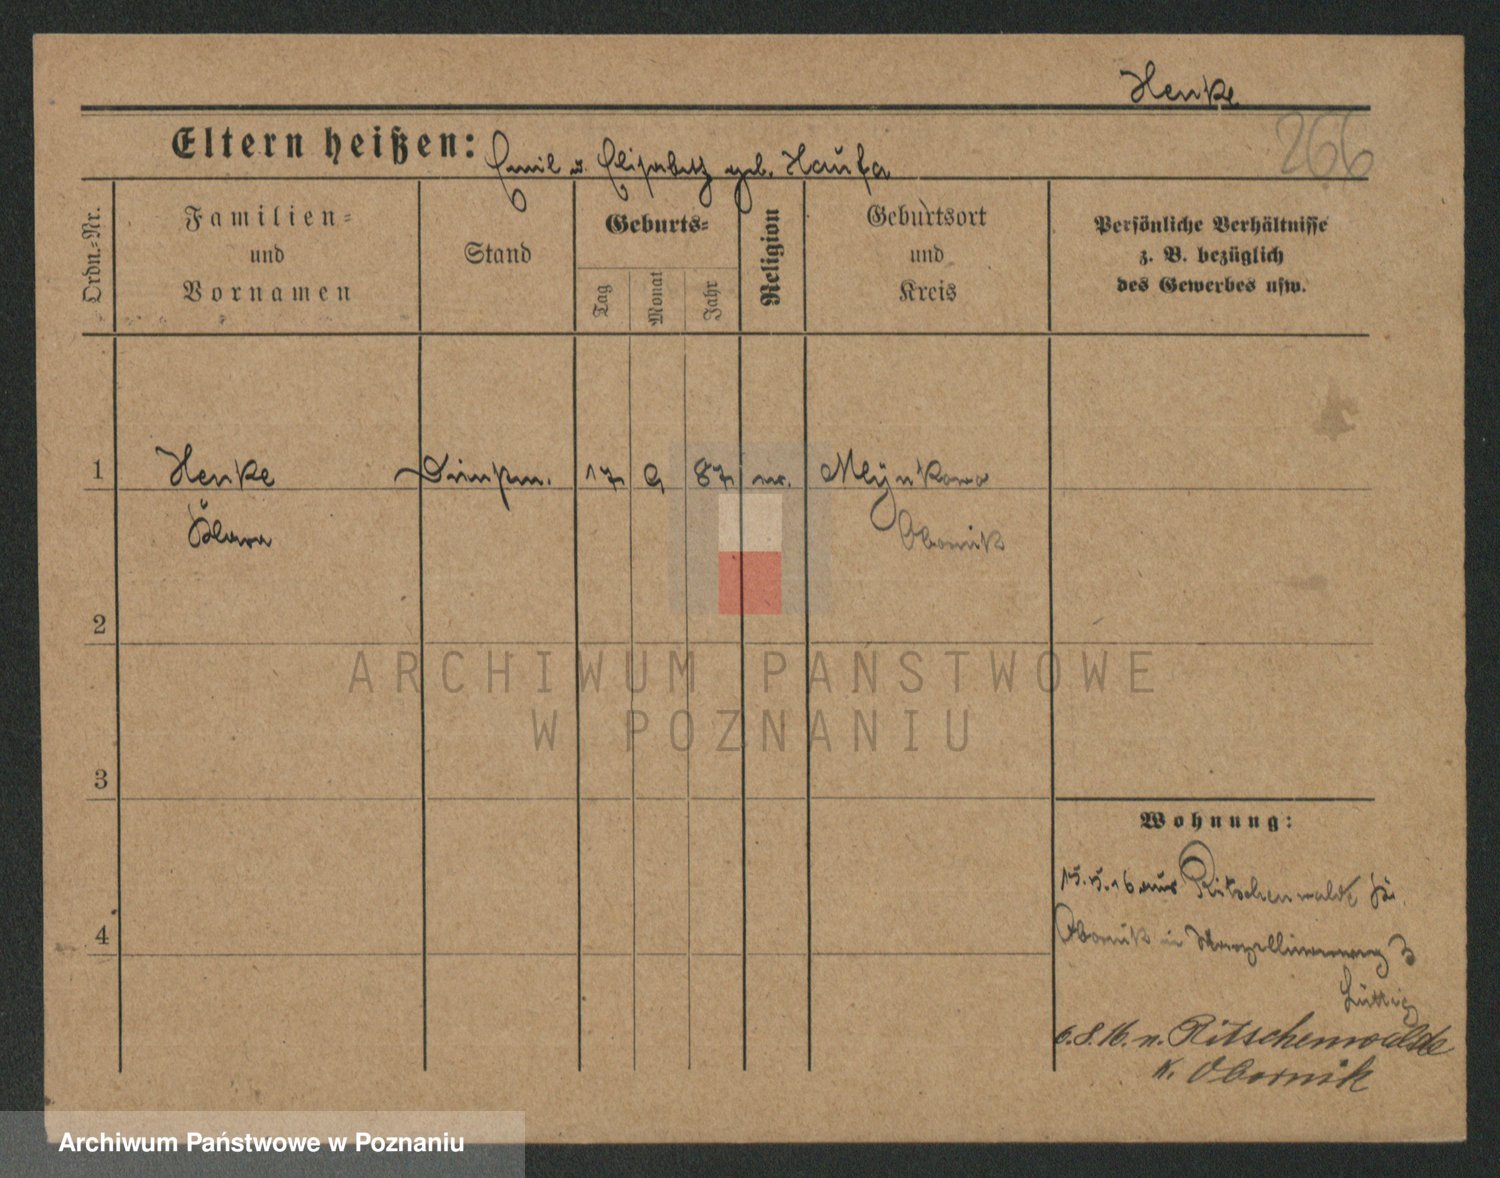 Henke
266
Eltern heißen: Emil u. Elisabeth geb. Haufa
Ordn.=Nr.
Familien=
und
Vornamen
Stand
Geburts=
Tag
Monat
Jahr
Religion
Geburtsort
und
Kreis
Persönliche Verhältnisse
z. B. bezüglich
des Gewerbes usw.
1 Henke 17 9 87 ev. Mlynkowo
Klara Obornik
2
3
4
Wohnung:
15.5.16 aus Ritschenwalde Kr.
Obornik in 3
Lüttig
6.8.16. n. Ritschenwalde
K. Obornik
ARCHIWUM PAŃSTWOWE
W POZNANIU
Archiwum Państwowe w Poznaniu